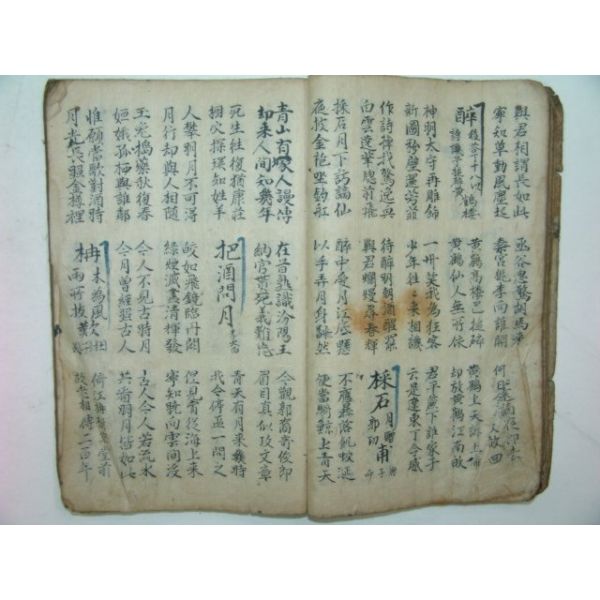 與君相謂長如此
寧知草動風塵起
函谷忽驚胡馬來
秦宮桃李向明開
何日金
放 回
醉後答丁十八
黃鶴樓
黃鶴高樓已搥碎
黃鶴仙人無所依
黃鶴上天訴上帝
却放黃鶴江南歸
神明太守再雕飾
新圖粉壁還芳菲
一州笑我為狂客
少年往往來相譏
君平簾下誰家子
云是遼東丁令威
作詩掉我驚逸興
白雲遶筆窓前飛
待醉明朝酒醒罷
與君爛熳尋春輝
採石月贈
郭功甫
採石月下訪謫仙
夜披金袍坐釣舡
醉中愛月江底懸
以手弄月身飜然
不應暴落飢蛟涎
便當騎鯨上青天
青山有塚人謾傳
却來人間知幾年
在昔熟識汾陽王
納官貰死義難忘
今觀郭裔奇俊郎
眉目真似攻文章
死生往復猶康莊
樹穴探環知姓羊
把酒問月
青天有月來幾時
我今停盃一問之
人攀明月不可得
月行却與人相隨
皎如飛鏡臨丹闕
綠煙滅盡清輝發
但見宵從海上來
寧知曉向雲間沒
玉兔搗藥秋復春
姮娥孤栖與誰鄰
今人不見古時月
今月曾經照古人
古人今人若流水
共看明月皆如此
惟願當歌對酒時
月光長照金樽裡
柟木為風
雨所拔歎
倚江柟樹草堂前
故老相傳二百年